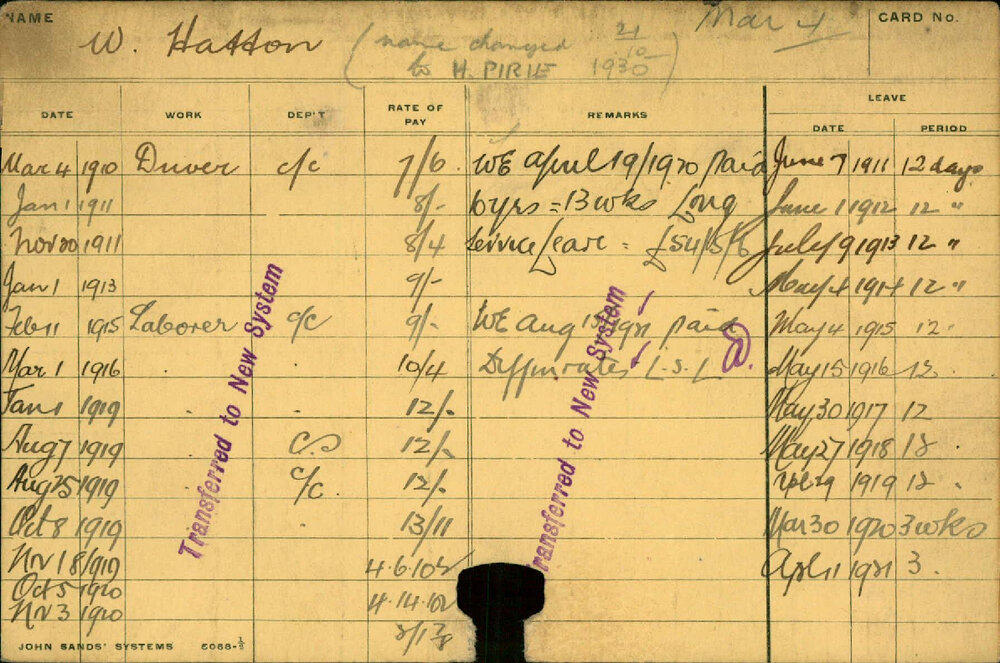 NAME W. Hatton (name changed to H. PIRIE 21/10 1930) Mar 4 CARD No.
DATE WORK DEP'T RATE OF PAY REMARKS LEAVE
DATE PERIOD
Mar 4 1910 Driver c/c 7/6 WE April 19/1920 paid June 7 1911 12 days
Jan 1 1911 8/- 10 yrs = 13 wks Long June 1 1912 12 "
Nov 20 1911 8/4 Service Leave = £54/15/6 July 9 1913 12 "
Jan 1 1913 9/- May 4 1914 12 "
Feb 11 1915 Laborer c/c 9/- WE Aug 1921 paid May 4 1915 12
Mar 1 1916 10/4 Diff in rates L.S.L May 15 1916 12
Jan 1 1919 12/- May 30 1917 12
Aug 7 1919 12/- May 27 1918 12
Aug 25 1919 c/c 12/- 9 1919 12
Oct 8 1919 13/11 Mar 30 1920 3 wks
Nov 18/1919 4.6.10½ Apl 11 1921 3
Oct 5 1920
Nov 3 1920 4.14.10½
Transferred to New System
Transferred to New System
JOHN SANDS' SYSTEMS